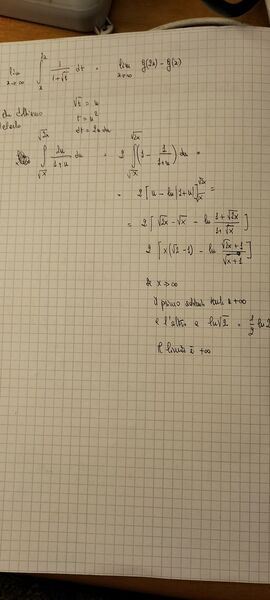 lim x→∞ ∫_x^{2x} 1/(1+√t) dt = lim x→∞ g(2x) − g(x)
√t = u
t = u²
dt = 2u du
∫_{√x}^{√2x} 2u/(1+u) du = 2 ∫_{√x}^{√2x} (1 − 1/(1+u)) du =
= 2 [u − ln|1+u|]_{√x}^{√2x} =
= 2 [√2x − √x − ln (1+√2x)/(1+√x)]
2 [x(√2−1) − ln (√2x+1)/(√x+1)]
x → ∞
Il primo tende a +∞
e l'altro a ln√2 = 1/2 ln 2
Il limite è +∞